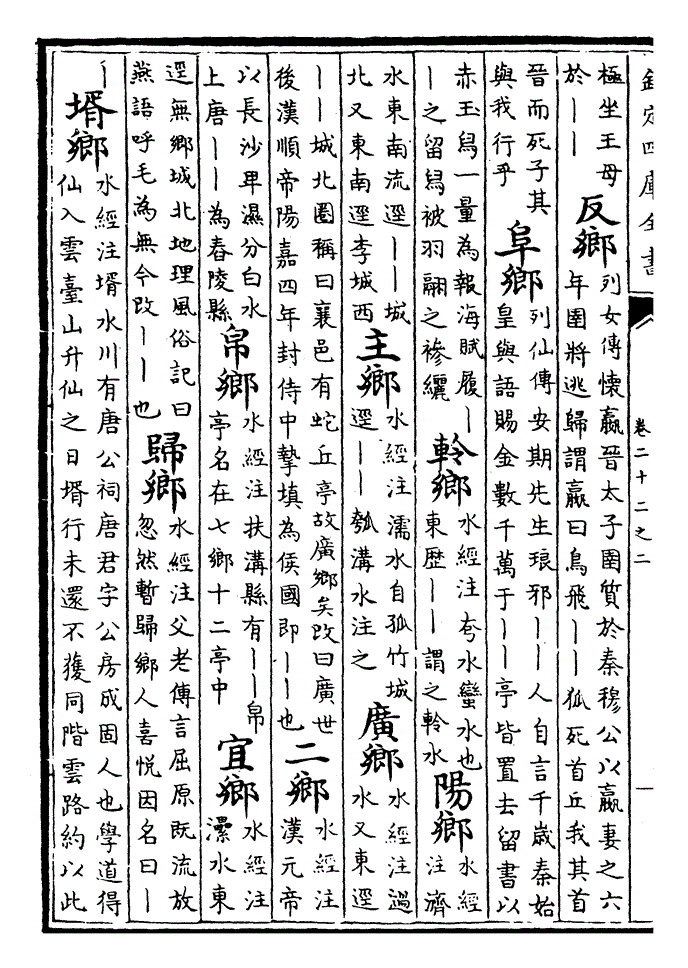 欽定四庫全書 卷二十二之二 一
極坐王母於丨丨 反鄉 列女傳懷嬴晉太子圉質於秦穆公以嬴妻之六年圉將逃歸謂嬴曰鳥飛丨丨狐死首丘我其首
晉而死子其與我行乎 阜鄉 列仙傳安期先生琅邪丨丨人自言千歲秦始皇與語賜金數千萬于丨丨亭皆置去留書以
赤玉舄一量為報海賦履丨丨之留舄被羽翮之襂纚 軨鄉 水經注夸水蠻水也東歷丨丨謂之軨水 陽鄉 水經注濟
水東南流逕丨丨城北又東南逕李城西 主鄉 水經注濡水自孤竹城逕丨丨瓠溝水注之 廣鄉 水經注過水又東逕
丨丨城北圈稱曰襄邑有蛇丘亭故廣鄉矣改曰廣世後漢順帝陽嘉四年封侍中摯填為侯國即丨丨也 二鄉 水經注漢元帝
以長沙卑濕分白水上唐丨丨為舂陵縣 帛鄉 水經注扶溝縣有丨丨帛亭名在七鄉十二亭中 宜鄉 水經注漯水東
逕無鄉城北地理風俗記曰燕語呼毛為無今改丨丨也 歸鄉 水經注父老傳言屈原旣流放忽然暫歸鄉人喜悅因名曰丨
丨 壻鄉 水經注壻水川有唐公祠唐君字公房成固人也學道得仙入雲臺山升仙之日壻行未還不獲同階雲路約以此